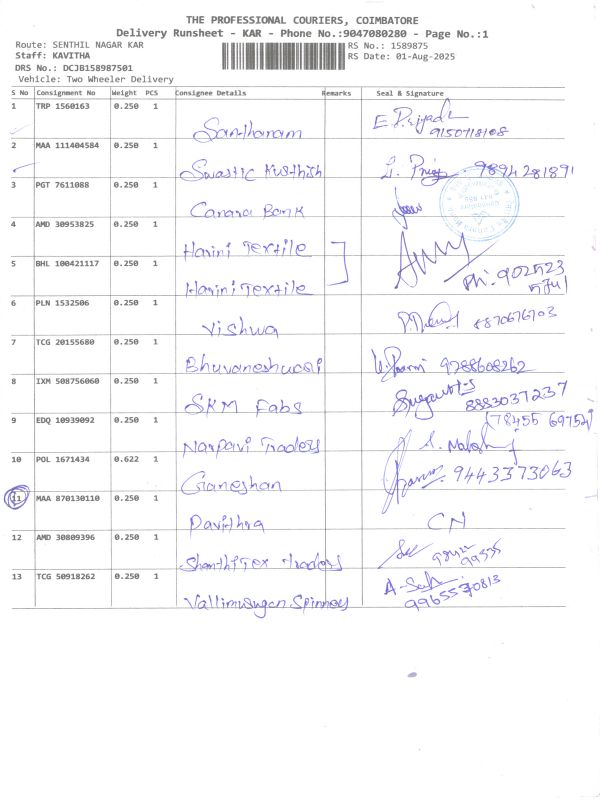 THE PROFESSIONAL COURIERS, COIMBATORE
Delivery Runsheet - KAR - Phone No.:9047080280 - Page No.:1
Route: SENTHIL NAGAR KAR
RS No.: 1589875
Staff: KAVITHA
RS Date: 01-Aug-2025
DRS No.: DCJB158987501
Vehicle: Two Wheeler Delivery
S No Consignment No Weight PCS Consignee Details Remarks Seal & Signature
1 TRP 1560163 0.250 1
Santharam E. Priyadh
9150718108
2 MAA 111404584 0.250 1
Swastic Kusthish 9894281891
3 PGT 7611088 0.250 1
Canara Bank
4 AMD 30953825 0.250 1
Harini Textile
5 BHL 100421117 0.250 1
Harini Textile Ph: 902523
6 PLN 1532506 0.250 1
Vishwa 8870676703
7 TCG 20155680 0.250 1
Bhuvaneshwari 9788608262
8 IXM 508756060 0.250 1
SKM Fabs 8883037237
9 EDQ 10939092 0.250 1
(78455 69752)
Narpavi Traders
10 POL 1671434 0.622 1
Ganeshan 9443373063
11 MAA 870130110 0.250 1
Pavithra CN
12 AMD 30809396 0.250 1
Shanthi Tex Traders
13 TCG 50918262 0.250 1
Vallimurugan Spinners
9965530813